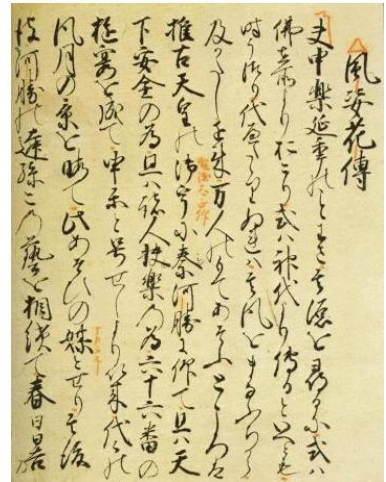 風姿花傳
夫申樂延年のことわさ其源を尋るに或ハ
佛在所よりおこり或ハ神代より傳ると云とも
時うつり代へたゝりぬれハ其風をまなふちから
及かたし近来万人のもてあそふところハ
推古天皇の御宇に秦河勝に仰て且ハ天
下安全の為且ハ諸人快樂の為六十六番の
遊宴を成て申樂と号せしより以来代々の
風月の景を借て此あそひの媒とせり其後
彼河勝の遠孫この藝を相續て春日日吉